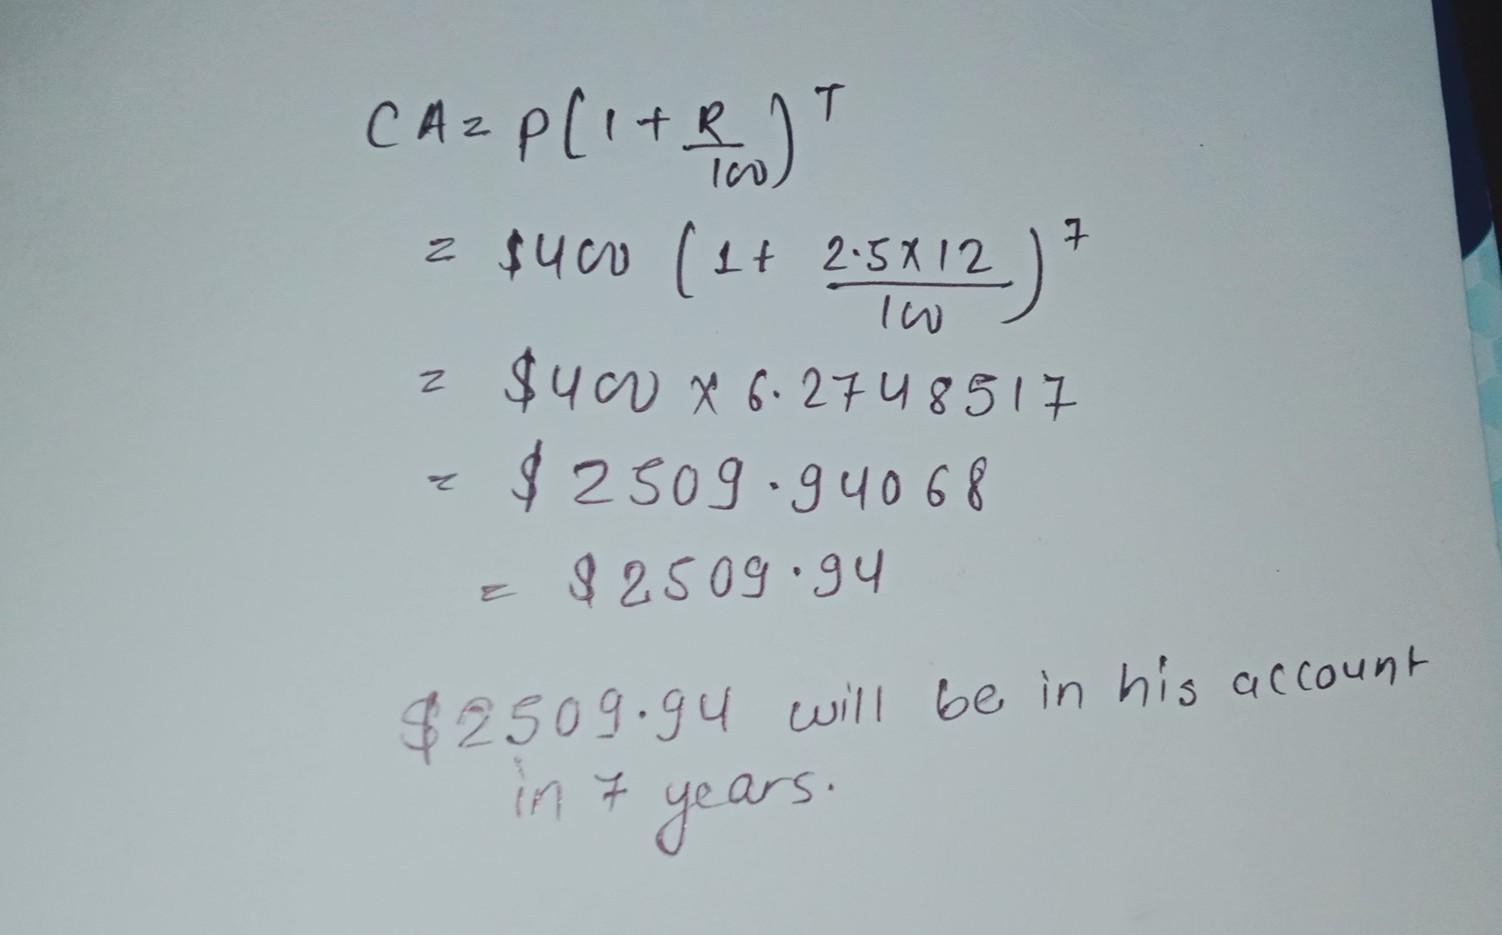 CA = P(1 + R/100)^T
= $400 (1 + 2.5×12/100)^7
= $400 × 6.2748517
= $2509.94068
= $2509.94
$2509.94 will be in his account
in 7 years.